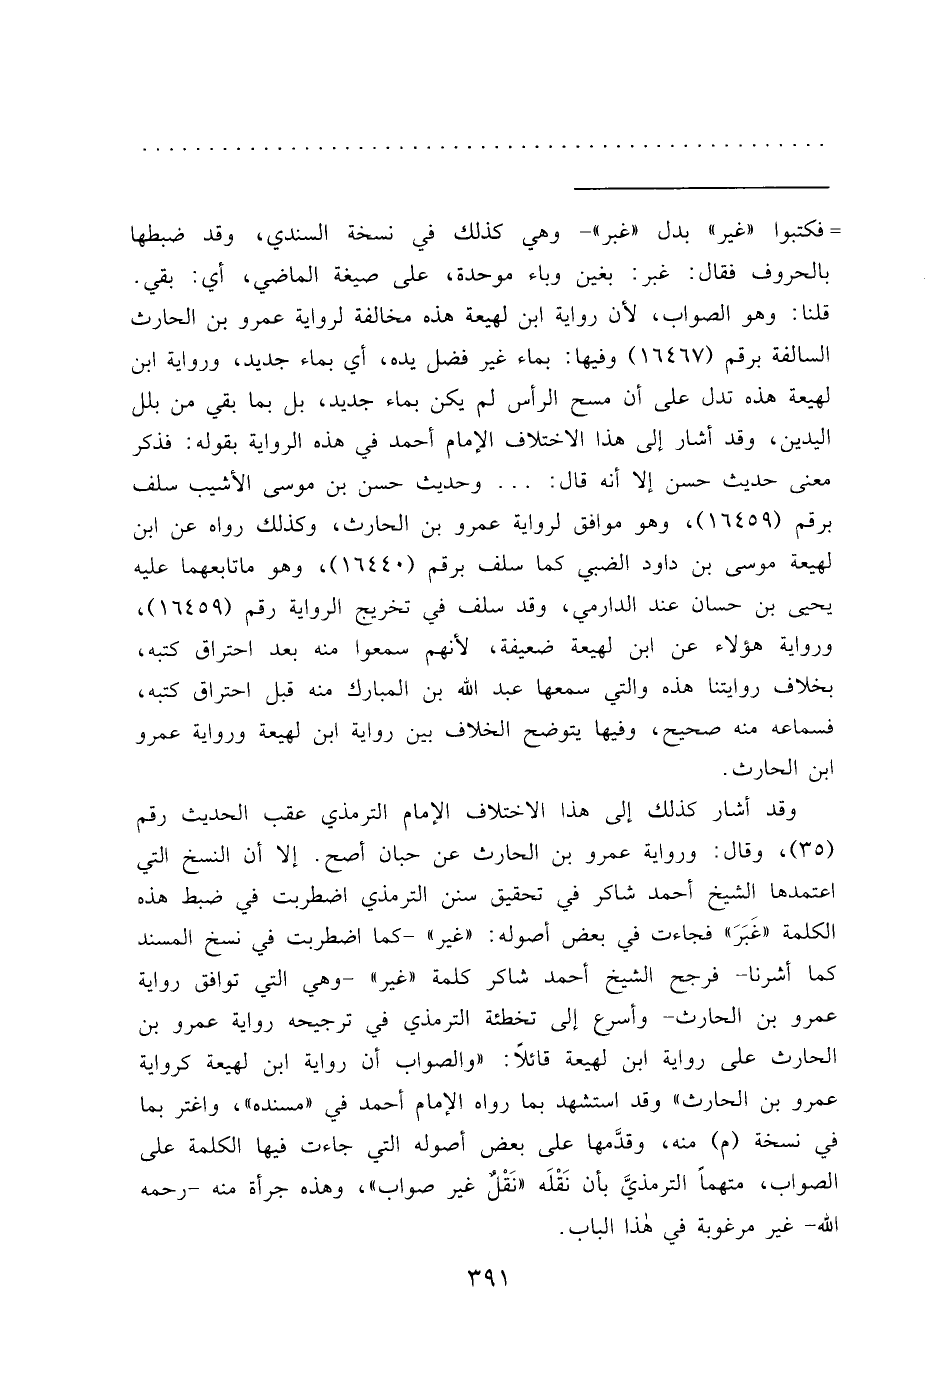 = فكتبوا «غير» بدل «غبر»- وهي كذلك في نسخة السندي، وقد ضبطها
بالحروف فقال: غبر: بغين وباء موحدة، على صيغة الماضي، أي: بقي.
قلنا: وهو الصواب، لأن رواية ابن لهيعة هذه مخالفة لرواية عمرو بن الحارث
السالفة برقم (١٦٤٦٧) وفيها: بماء غير فضل يده، أي بماء جديد، ورواية ابن
لهيعة هذه تدل على أن مسح الرأس لم يكن بماء جديد، بل بما بقي من بلل
اليدين، وقد أشار إلى هذا الاختلاف الإمام أحمد في هذه الرواية بقوله: فذكر
معنى حديث حسن إلا أنه قال: ... وحديث حسن بن موسى الأشيب سلف
برقم (١٦٤٥٩)، وهو موافق لرواية عمرو بن الحارث، وكذلك رواه عن ابن
لهيعة موسى بن داود الضبي كما سلف برقم (١٦٤٤٠)، وهو ماتابعهما عليه
يحيى بن حسان عند الدارمي، وقد سلف في تخريج الرواية رقم (١٦٤٥٩)،
ورواية هؤلاء عن ابن لهيعة ضعيفة، لأنهم سمعوا منه بعد احتراق كتبه،
بخلاف روايتنا هذه والتي سمعها عبد الله بن المبارك منه قبل احتراق كتبه،
فسماعه منه صحيح، وفيها يتوضح الخلاف بين رواية ابن لهيعة ورواية عمرو
ابن الحارث.
وقد أشار كذلك إلى هذا الاختلاف الإمام الترمذي عقب الحديث رقم
(٣٥)، وقال: ورواية عمرو بن الحارث عن حبان أصح. إلا أن النسخ التي
اعتمدها الشيخ أحمد شاكر في تحقيق سنن الترمذي اضطربت في ضبط هذه
الكلمة «غَبَرَ» فجاءت في بعض أصوله: «غير» -كما اضطربت في نسخ المسند
كما أشرنا- فرجح الشيخ أحمد شاكر كلمة «غير» -وهي التي توافق رواية
عمرو بن الحارث- وأسرع إلى تخطئة الترمذي في ترجيحه رواية عمرو بن
الحارث على رواية ابن لهيعة قائلاً: «والصواب أن رواية ابن لهيعة كرواية
عمرو بن الحارث» وقد استشهد بما رواه الإمام أحمد في «مسنده»، واغتر بما
في نسخة (م) منه، وقدَّمها على بعض أصوله التي جاءت فيها الكلمة على
الصواب، متهماً الترمذيَّ بأن نَقْلَه «نَقْلٌ غير صواب»، وهذه جرأة منه -رحمه
الله- غير مرغوبة في هٰذا الباب.
٣٩١